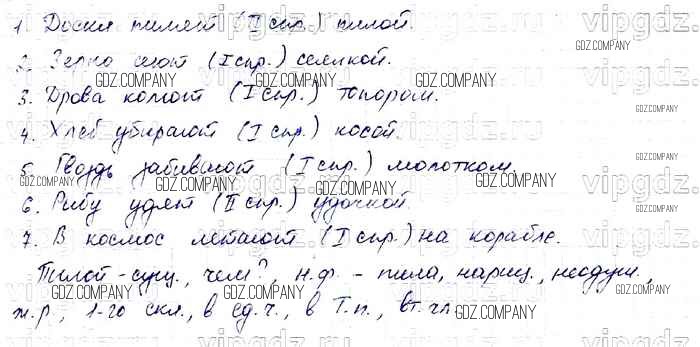 1. Доски пилят (II спр.) пилой.
2. Зерно сеют (I спр.) сеялкой.
3. Дрова колют (I спр.) топором.
4. Хлеб убирают (I спр.) косой.
5. Гвоздь забивают (I спр.) молотком.
6. Рыбу удят (II спр.) удочкой.
7. В космос летают (I спр.) на корабле.
Пилой - сущ., чем?, н.ф. - пила, нариц., неодуш.,
ж.р., 1-го скл., в ед.ч., в Т.п., вт.чл.
GDZ.COMPANY
vipgdz.ru